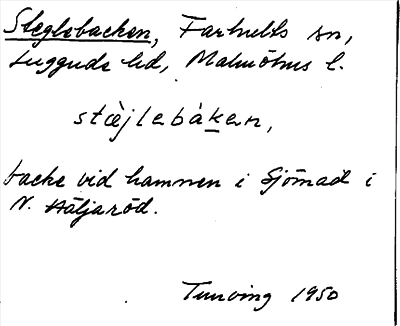 Steglebacken, Farhults sn,
Luggude hd, Malmöhus l.
stæ̀jlebàken,
backe vid hamnen i Sjömad i
N. Häljaröd.
Tunving 1950